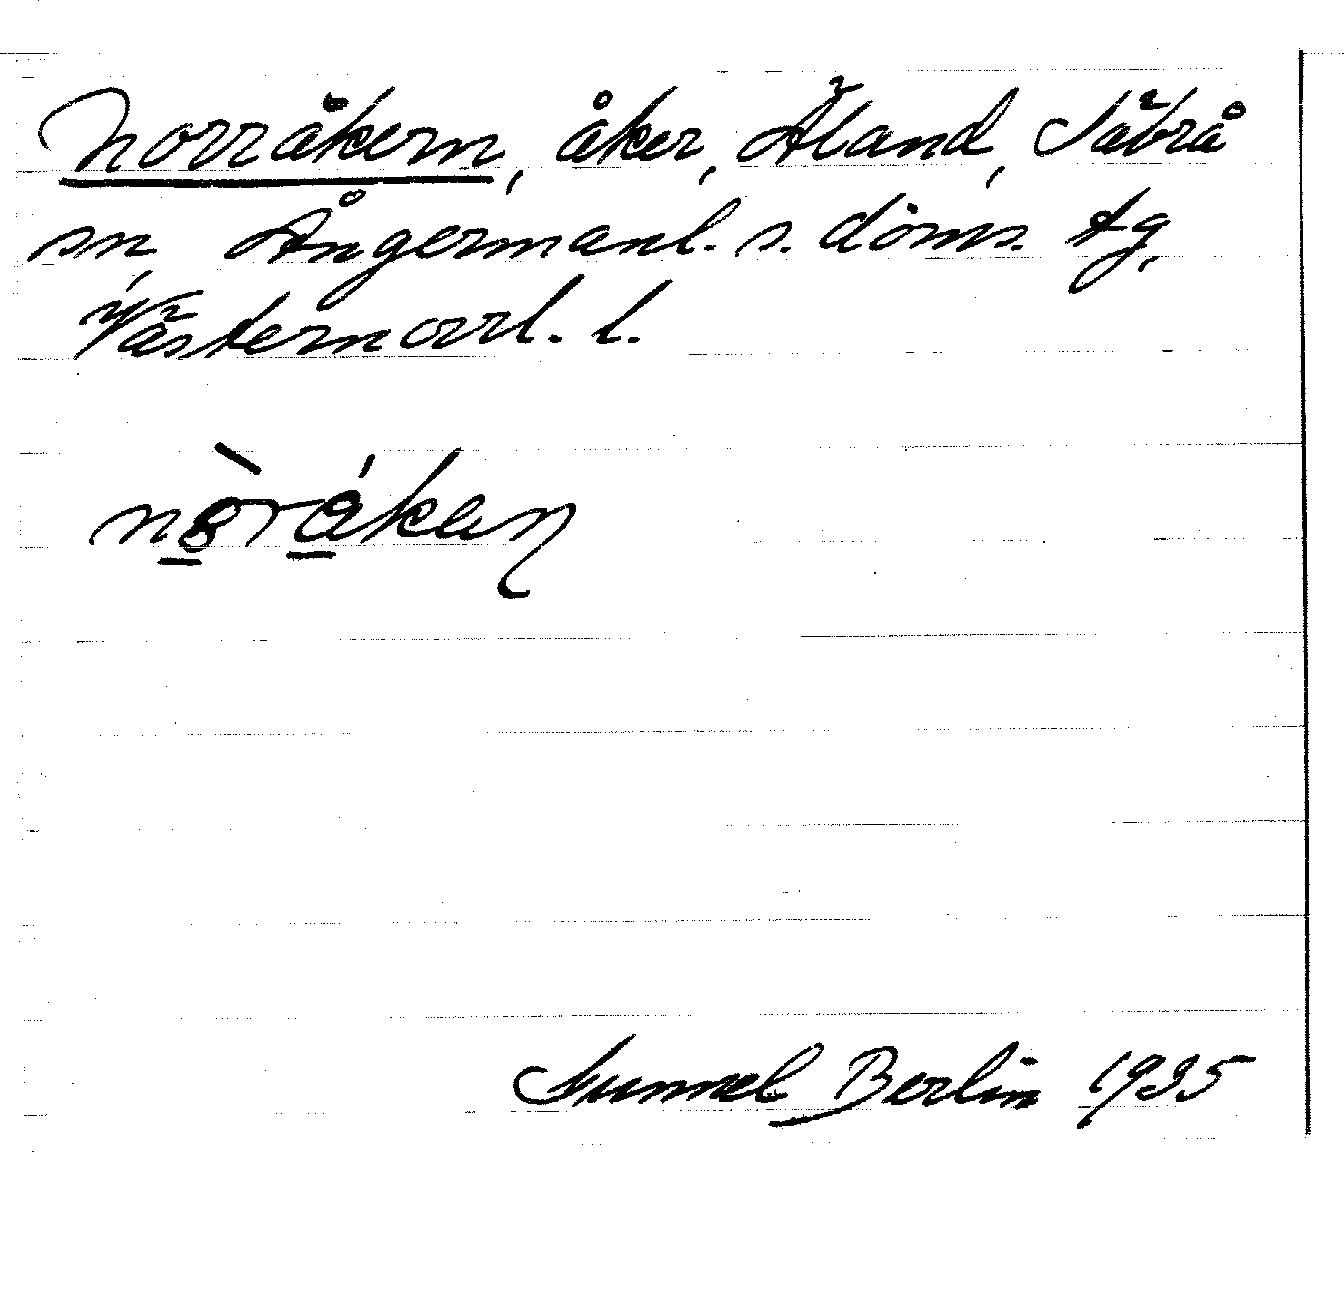 Norråkern, åker, Äland, Säbrå
sn, Ångermanl. s. doms. tg,
Västernorrl. l.
Gunnel Berlin 1935